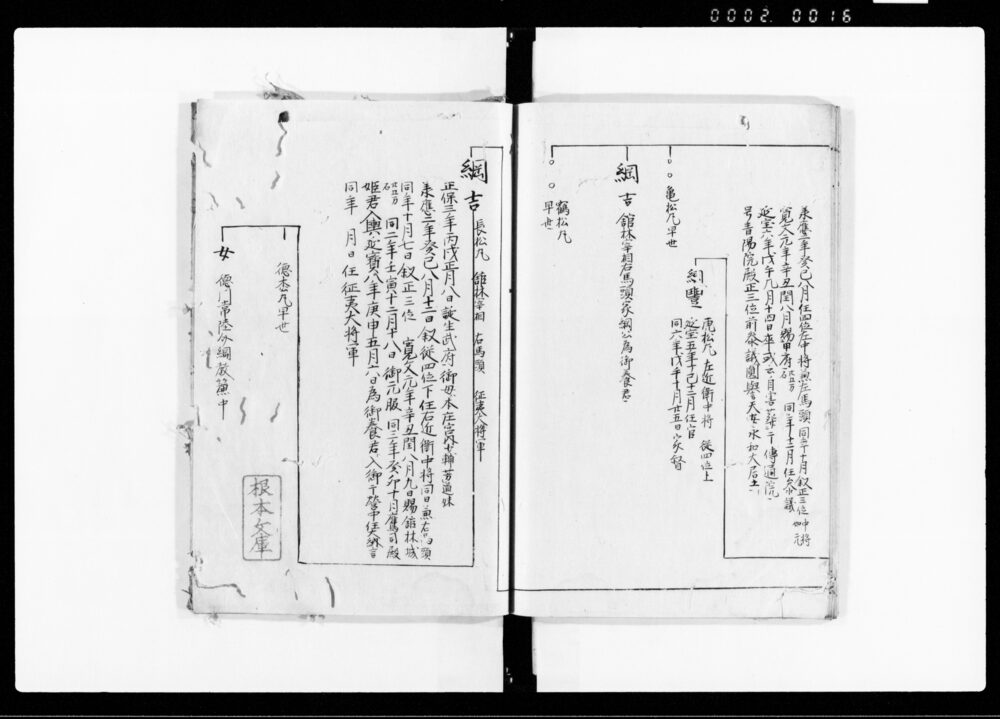 0002 0016
承應二年癸巳八月任四位左中将兼左馬頭同年十月叙正三位中将如元
寛文元年辛丑閏八月賜甲府廿五万石 同年十二月任参議
延宝六年戊午九月十四日卒或云自害葬于傳通院
号青陽院殿正三位前参議圓譽天安永和大居士
綱豊
虎松丸 左近衛中将 従四位上
延宝五年丁巳十二月任官
同六年戊午十月廿五日家督
亀松丸早世
綱吉 舘林宰相右馬頭家綱公為御養君
鶴松丸
早世
綱吉 長松丸 舘林宰相 右馬頭 征夷大将軍
正保三年丙戌正月八日誕生武府御母本庄宮内少輔芳道妹
承應二年癸巳八月十二日叙従四位下任右近衛中将同日兼右馬頭
同年十月七日叙正三位 寛文元年辛丑閏八月九日賜舘林城
廿五万石 同二年壬寅十二月十八日御元服 同三年癸卯十月鷹司殿
姫君入輿延寶八年庚申五月六日為御養君入御于營中任大納言
同年 月日任征夷大将軍
德杰丸早世
女 德川常陸介綱教簾中
根本文庫